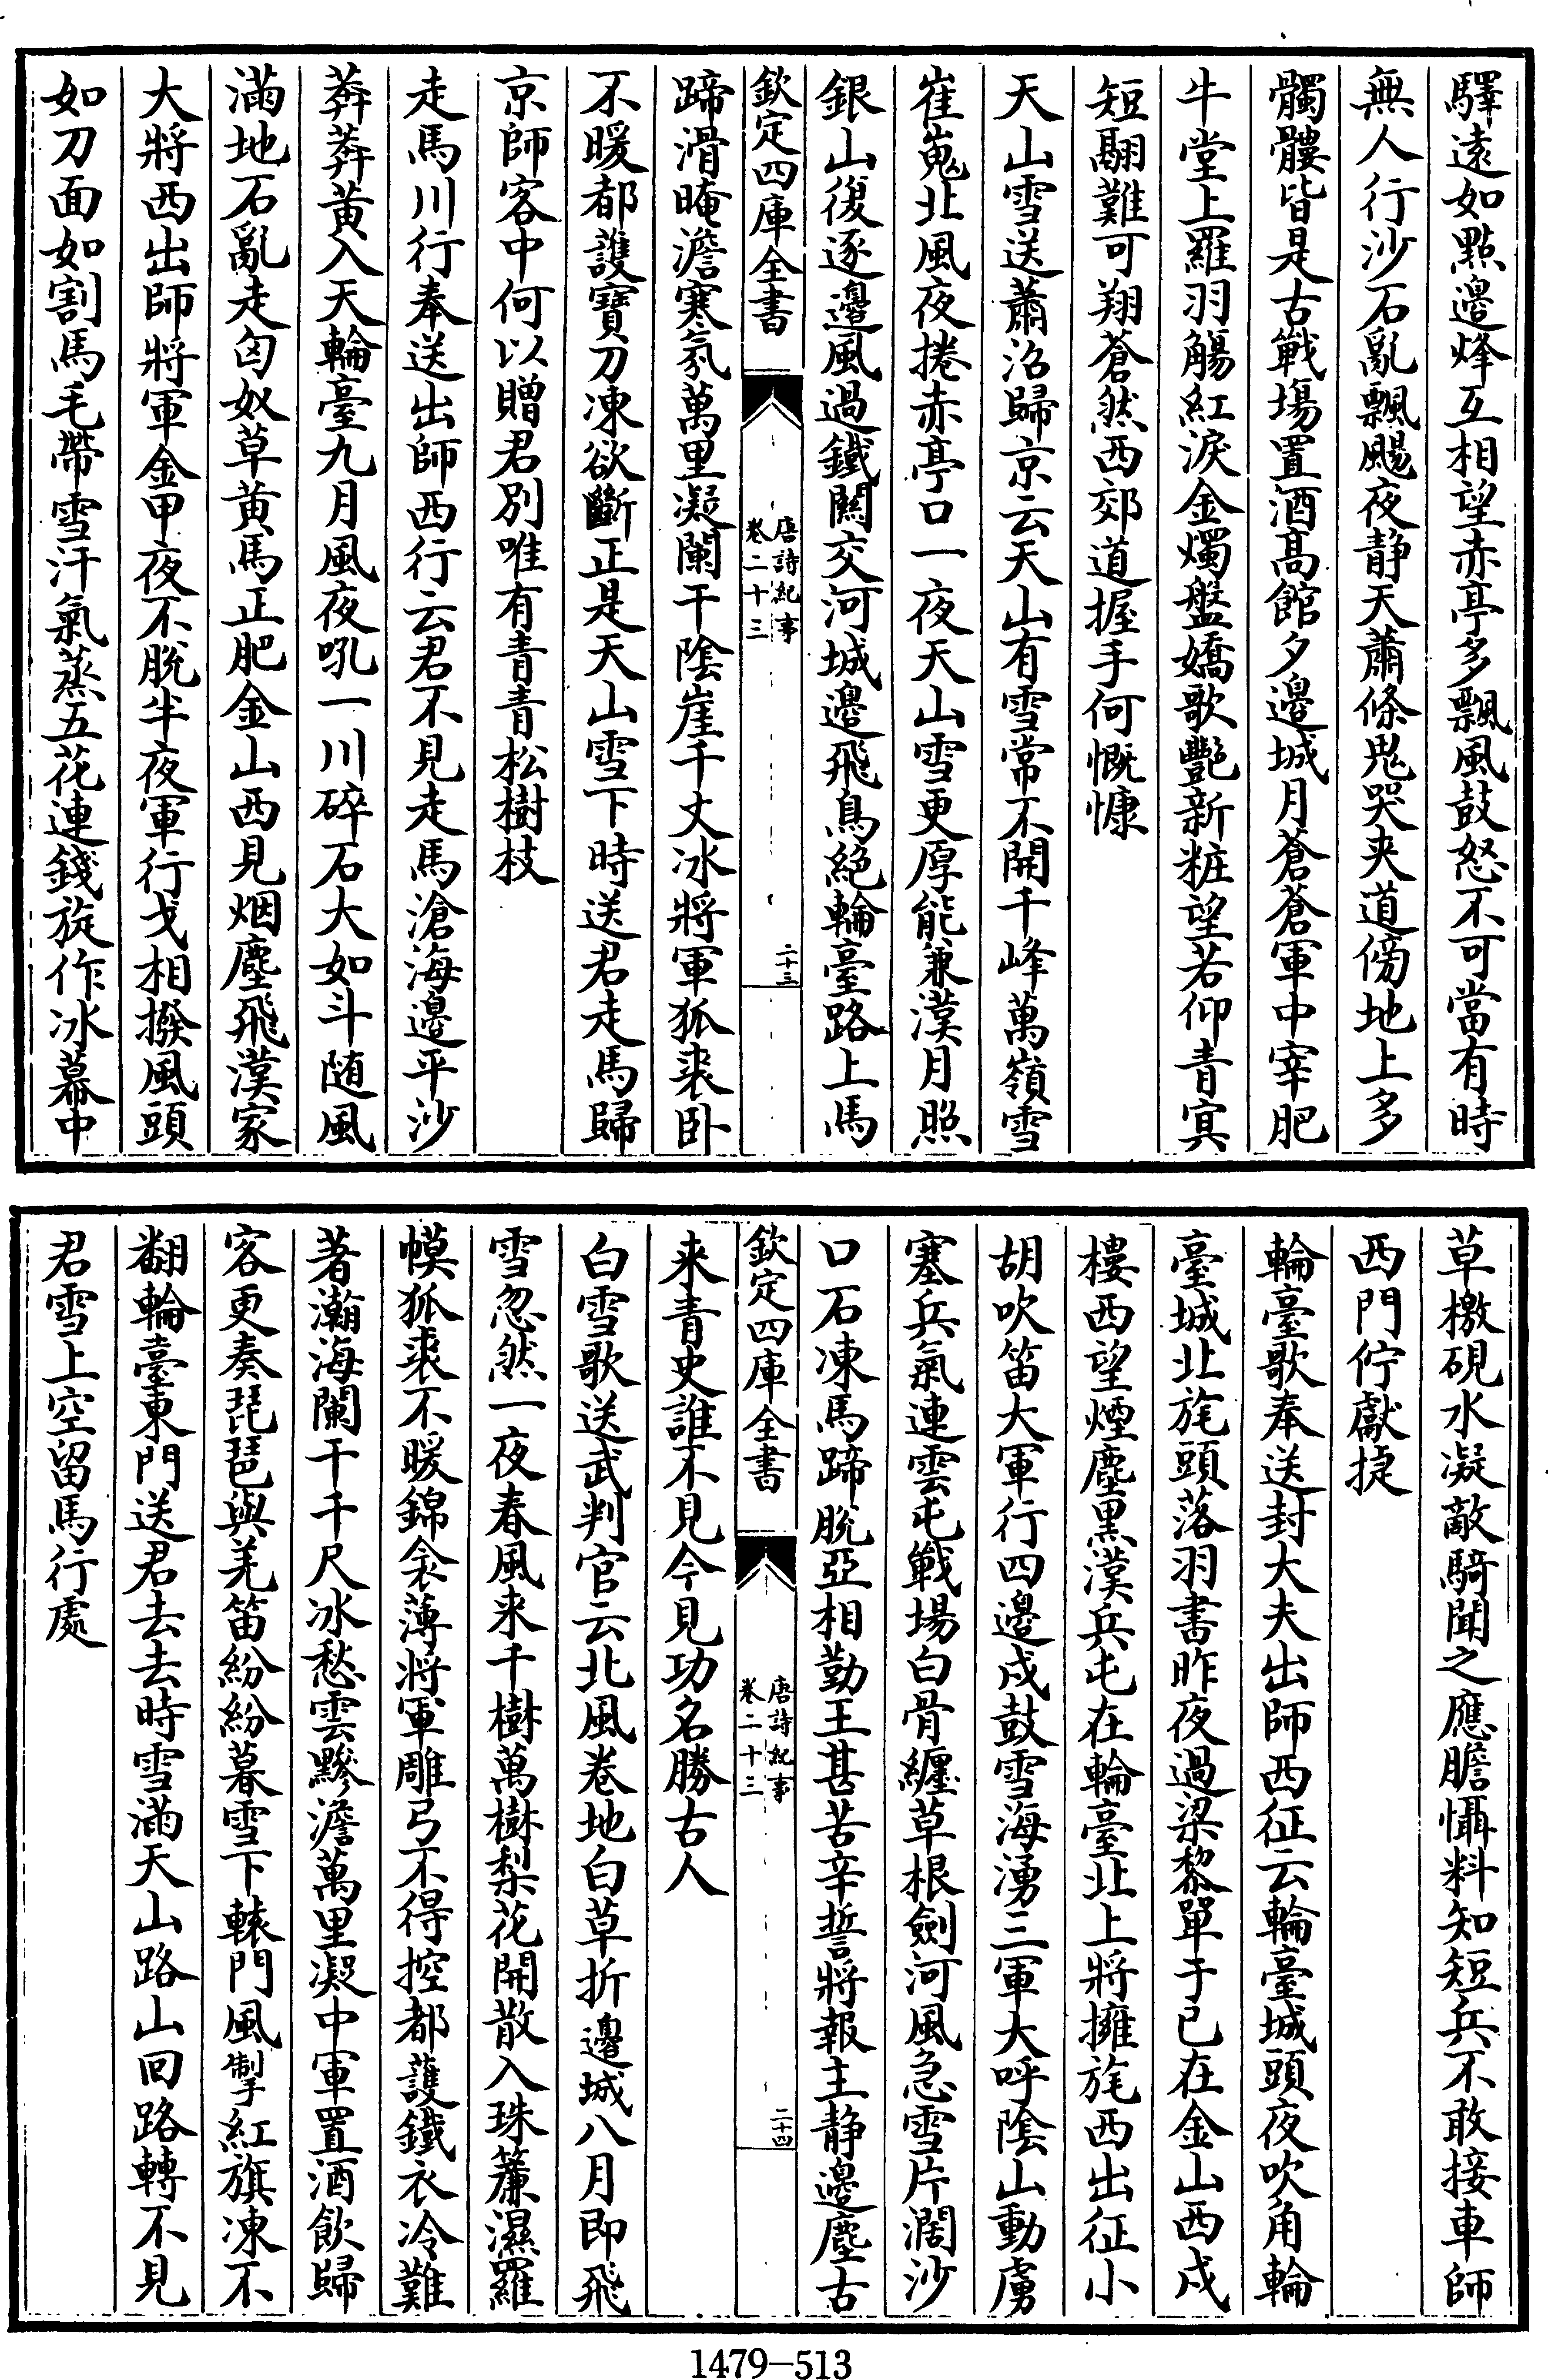 驛遠如點邊烽互相望赤亭多飄風鼓怒不可當有時
無人行沙石亂飄颺夜静天蕭條鬼哭夹道傍地上多
髑髏皆是古戰塲置酒髙館夕邊城月蒼蒼軍中宰肥
牛堂上羅羽觴紅淚金燭盤嬌歌艷新粧望若仰青冥
短翮難可翔蒼然西郊道握手何慨慷
天山雪送蕭沼歸京云天山有雪常不開千峰萬嶺雪
崔嵬北風夜捲赤亭口一夜天山雪更厚能兼漢月照
銀山復逐邊風過鐵闗交河城邊飛鳥絶輪臺路上馬
欽定四庫全書
唐詩紀事
卷二十三
二十三
蹄滑晻澹寒氛萬里凝闌干陰崖千丈冰將軍狐裘卧
不暖都護寳刀凍欲斷正是天山雪下時送君走馬歸
京師客中何以贈君别唯有青青松樹枝
走馬川行奉送出師西行云君不見走馬滄海邊平沙
莽莽黄入天輪臺九月風夜吼一川碎石大如斗随風
滿地石亂走匈奴草黄馬正肥金山西見烟塵飛漢家
大將西出師將軍金甲夜不脱半夜軍行戈相撥風頭
如刀面如割馬毛帶雪汗氣蒸五花連錢旋作冰幕中
草檄硯水凝敵騎聞之應膽懾料知短兵不敢接車師
西門佇獻捷
輪臺歌奉送封大夫出師西征云輪臺城頭夜吹角輪
臺城北旄頭落羽書昨夜過梁黎單于已在金山西戍
樓西望煙塵黒漢兵屯在輪臺北上將擁旄西出征小
胡吹笛大軍行四邊戍鼓雪海湧三軍大呼陰山動虜
塞兵氣連雲屯戰場白骨纒草根劍河風急雪片濶沙
口石凍馬蹄脱亞相勤王甚苦辛誓將報主静邊塵古
欽定四庫全書
唐詩紀事
卷二十三
二十四
来青史誰不見今見功名勝古人
白雪歌送武判官云北風卷地白草折邊城八月即飛
雪忽然一夜春風来千樹萬樹梨花開散入珠簾濕羅
幙狐裘不暖錦衾薄將軍雕弓不得控都護鐵衣冷難
著瀚海闌干千尺冰愁雲黪澹萬里凝中軍置酒飲歸
客更奏琵琶與羌笛紛紛暮雪下轅門風掣紅旗凍不
翻輪臺東門送君去去時雪滿天山路山回路轉不見
君雪上空留馬行處
1479-513